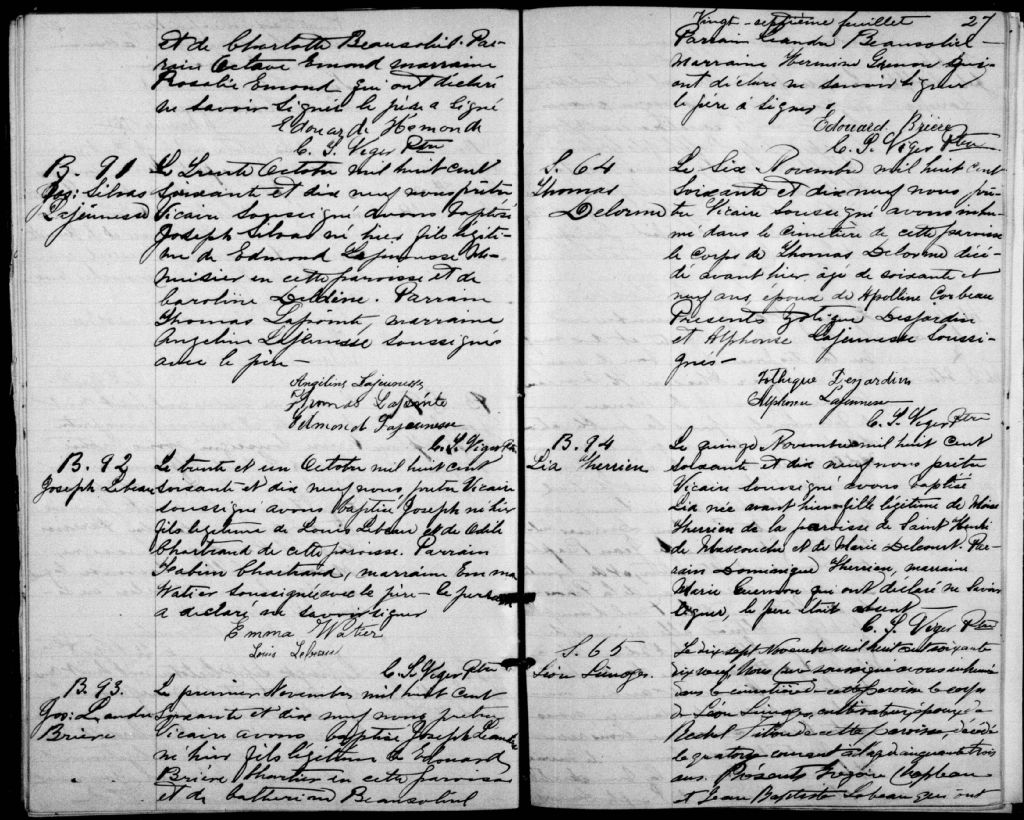 et de Charlotte Beausoleil. Par-
rain Octave Emond marraine
Rosalie Emond qui ont déclaré
ne savoir signer le père a signé
Edouard Hemond
C. S. Viger Ptre
B. 91
Jos: Silvas
Lajeunesse
Le Trente Octobre mil huit cent
soixante et dix neuf nous prêtre
Vicaire soussigné avons baptisé
Joseph Silvas né hier fils légiti-
me de Edmond Lajeunesse Me-
nuisier en cette paroisse et de
Caroline Parrain
Thomas Lapointe, marraine
Angelina Lajeunesse soussignés
avec le père—
Angelina Lajeunesse
Thomas Lapointe
Edmond Lajeunesse
C. S. Viger Ptre
B. 92
Joseph Lebeau
Le trente et un Octobre mil huit cent
soixante et dix neuf nous, prêtre Vicaire
soussigné avons baptisé Joseph né hier
fils légitime de Louis Lebeau et de Odile
Chartrand de cette paroisse. Parrain
Chartrand, marraine Emma
Watier soussignée avec le père— le parrain
a déclaré ne savoir signer
Emma Watier
Louis Lebeau
C. S. Viger Ptre
B. 93.
Jos: Leandre
Brière
Le premier Novembre mil huit cent
soixante et dix neuf nous prêtre
Vicaire avons baptisé Joseph Leandre
né hier fils légitime de Edouard
Brière Charretier en cette paroisse
et de Catherine Beausoleil
Vingt-septième feuillet 27
Parrain Leandre Beausoleil—
Marraine Hermine qui
ont déclaré ne savoir signer
le père a signé
Edouard Brière
C. S. Viger Ptre
S. 64
Thomas
Delorme
Le Six Novembre mil huit cent
soixante et dix neuf nous, prê-
tre Vicaire soussigné avons inhu-
mé dans le cimetière de cette paroisse
le corps de Thomas Delorme décé-
dé avant hier âgé de soixante et
neuf ans, époux de Apolline Corbeau
Présents Desjardin
et Alphonse Lajeunesse soussi-
gnés—
Desjardins
Alphonse Lajeunesse
C. S. Viger Ptre
B. 94
Lia Therrien
Le quinze Novembre mil huit cent
soixante et dix neuf nous prêtre
Vicaire soussigné avons baptisé
Lia née avant hier fille légitime de Moise
Therrien de la paroisse de Saint Henri
de Mascouche et de Marie Delcourt. Par-
rain Dominique Therrien, marraine
Marie qui ont déclaré ne savoir
signer, le père était absent
C. S. Viger Ptre
S. 65
Léon Limoges.
Le dix sept Novembre mil huit cent soixante
dix neuf, Nous Curé soussigné avons inhumé
dans le cimetière de cette paroisse le corps
de Léon Limoges, cultivateur, époux de
Rachel de cette paroisse, décédé
le quatorze courant à l'âge de cinquante trois
ans. Présents Grégoire Chapleau
et Jean Baptiste Lebeau qui ont